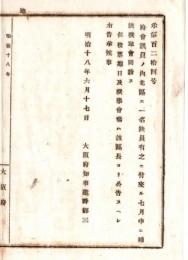 本部百二拾四号
府會議員ノ内北區ニ一名缺員有之ニ付來ル七月中ニ補
缺撰擧會開設ス
但投票期日及撰擧會場ハ該區長ヨリ告スヘシ
右告示候事
明治十八年六月十七日
大阪府知事建野郷三
明治十八年
大阪府